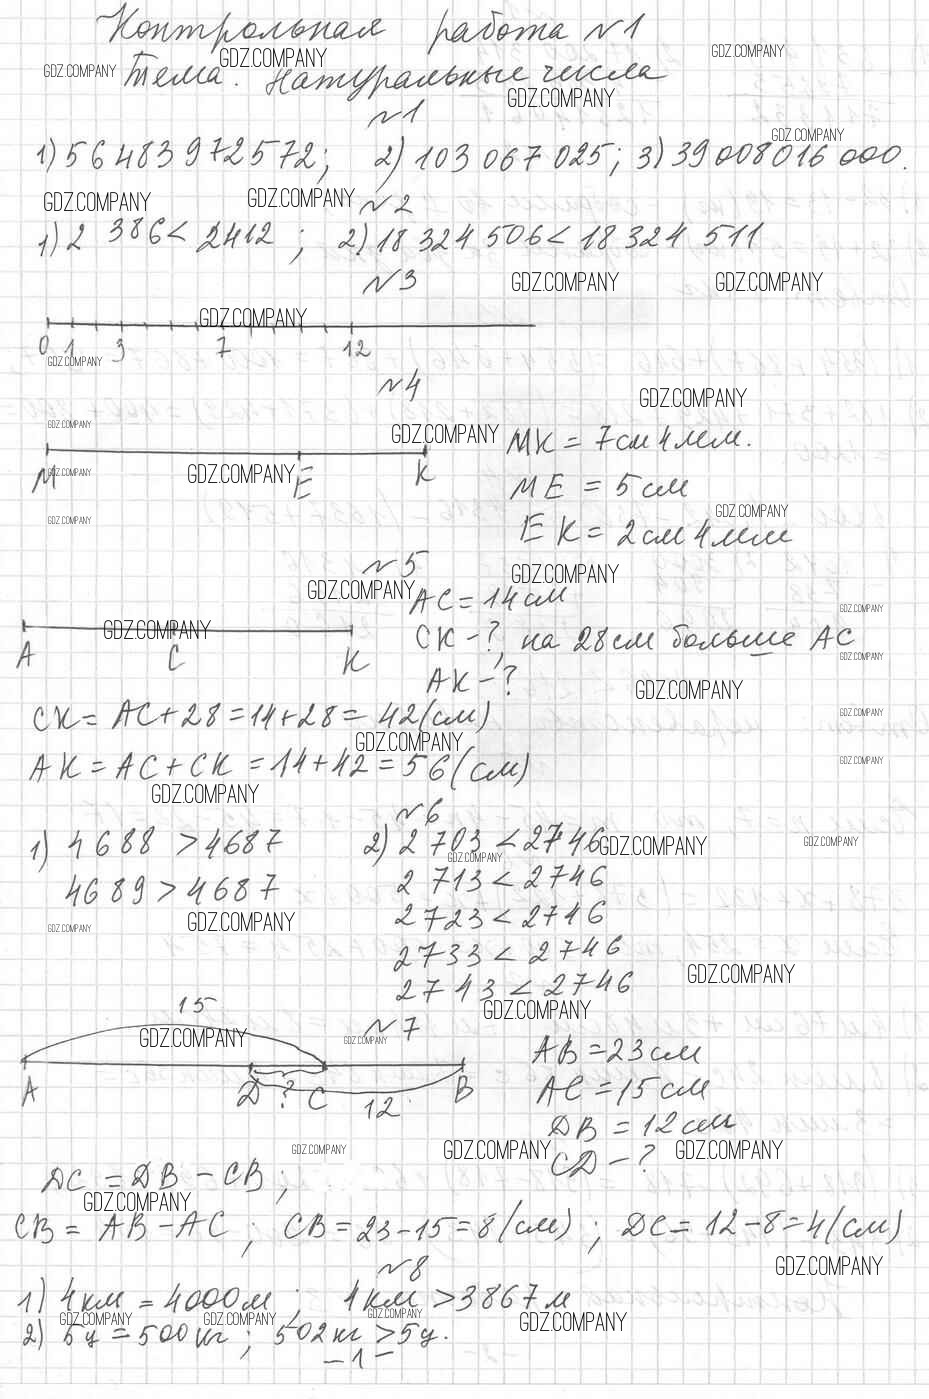 Контрольная работа №1
Тема. Натуральные числа
№1
1) 56 483 972 572; 2) 103 067 025; 3) 39 008 016 000.
№2
1) 2 386 < 2412; 2) 18 324 506 < 18 324 511
№3
0 1 3 7 12
№4
M E K
MK = 7см 4мм.
ME = 5см
EK = 2см 4мм
№5
A C K
AC = 14см
CK - ?, на 28см больше AC
AK - ?
CK = AC + 28 = 14 + 28 = 42 (см)
AK = AC + CK = 14 + 42 = 56 (см)
№6
1) 4688 > 4687
4689 > 4687
2) 2 703 < 2746
2 713 < 2746
2723 < 2746
2733 < 2746
2743 < 2746
№7
15
A D ? C B
12
AB = 23см
AC = 15см
DB = 12см
CD - ?
DC = DB - CB;
CB = AB - AC; CB = 23 - 15 = 8 (см); DC = 12 - 8 = 4 (см)
№8
1) 4км = 4000м; 4км > 3867м
2) 5ц = 500кг; 502кг > 5ц.
- 1 -
GDZ.COMPANY